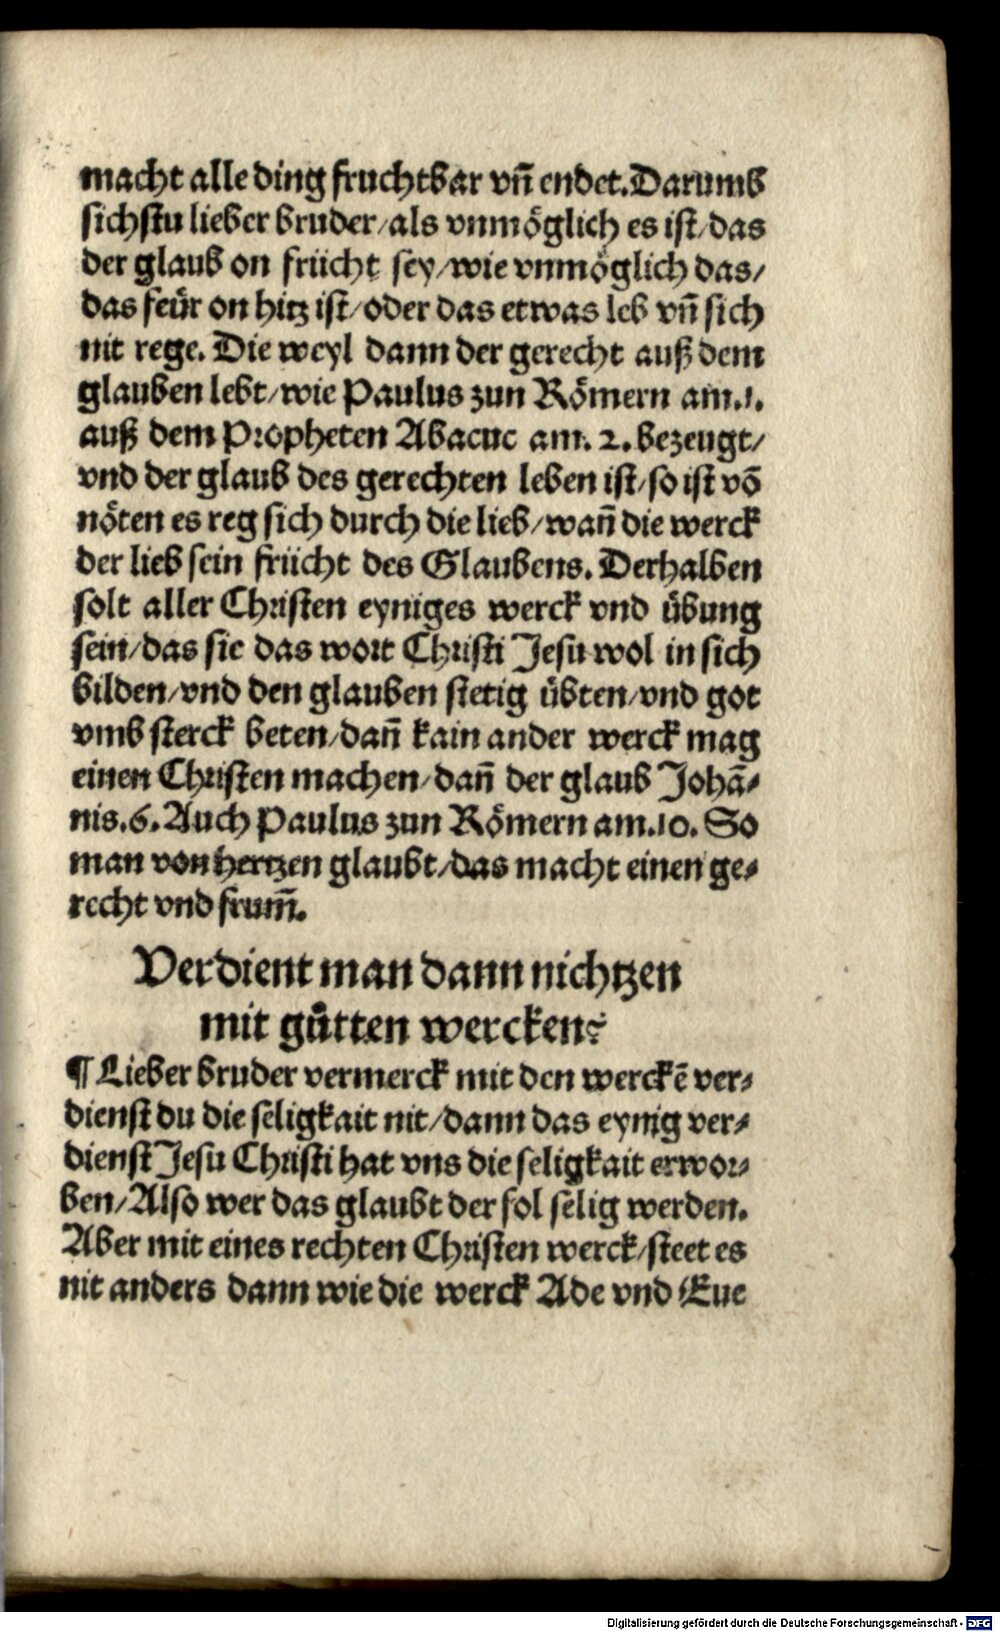 macht alle ding fruchtbar vn̄ endet. Darumb
sichstu lieber bruder/als vnmöglich es ist/das
der glaub on frücht sey/wie vnmöglich das/
das feür on hitz ist/oder das etwas leb vn̄ sich
nit rege. Die weyl dann der gerecht auß dem
glauben lebt/wie Paulus zun Römern am.1.
auß dem Propheten Abacuc am. 2. bezeugt/
vnd der glaub des gerechten leben ist/so ist vō
nöten es reg sich durch die lieb/wan̄ die werck
der lieb sein frücht des Glaubens. Derhalben
solt aller Christen eyniges werck vnd übung
sein/das sie das wort Christi Jesu wol in sich
bilden/vnd den glauben stetig übten/vnd got
vmb sterck beten/dan̄ kain ander werck mag
einen Christen machen/dan̄ der glaub Johā⸗
nis.6. Auch Paulus zun Römern am.10. So
man von hertzen glaubt/das macht einen ge⸗
recht vnd frum̄.
Verdient man dann nichtzen
mit gůtten wercken?
¶ Lieber bruder vermerck mit den werckē ver⸗
dienst du die seligkait nit/dann das eynig ver⸗
dienst Jesu Christi hat vns die seligkait erwor⸗
ben/Also wer das glaubt der sol selig werden.
Aber mit eines rechten Christen werck/steet es
nit anders dann wie die werck Ade vnd Eue
Digitalisierung gefördert durch die Deutsche Forschungsgemeinschaft - DFG